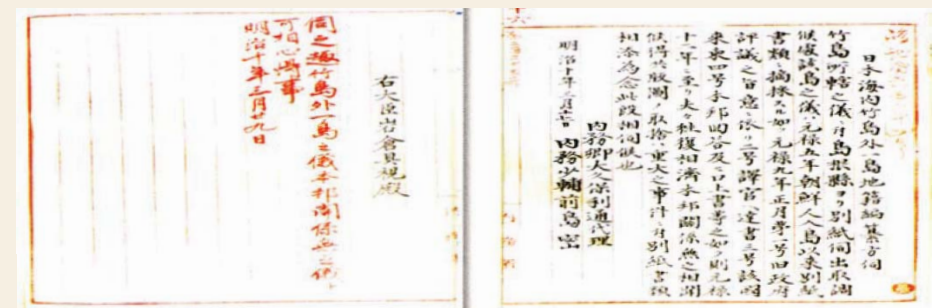 日本海内竹島外一島地籍編纂方伺
竹島所轄之儀ニ付島根縣ヨリ別紙伺出取調
候處該島之儀ハ元禄五年朝鮮人入島以来別紙
書類ニ摘採スル如ク元禄九年正月第一号旧政府
評議之旨意ニ依リ二号譯官ヘ達書三号該國
来柬四号本邦回答及ヒ口上書等之如ク則元禄
十二年ニ至リ夫々往復相濟本邦関係無之相聞
候得共版圖ノ取捨ハ重大之事件ニ付別紙書類
相添為念此段相伺候也
明治十年三月十七日
内務卿大久保利通代理
内務少輔前島密
右大臣岩倉具視殿
伺之趣竹島外一島之儀本邦関係無之儀ト
可相心得事
明治十年三月廿九日